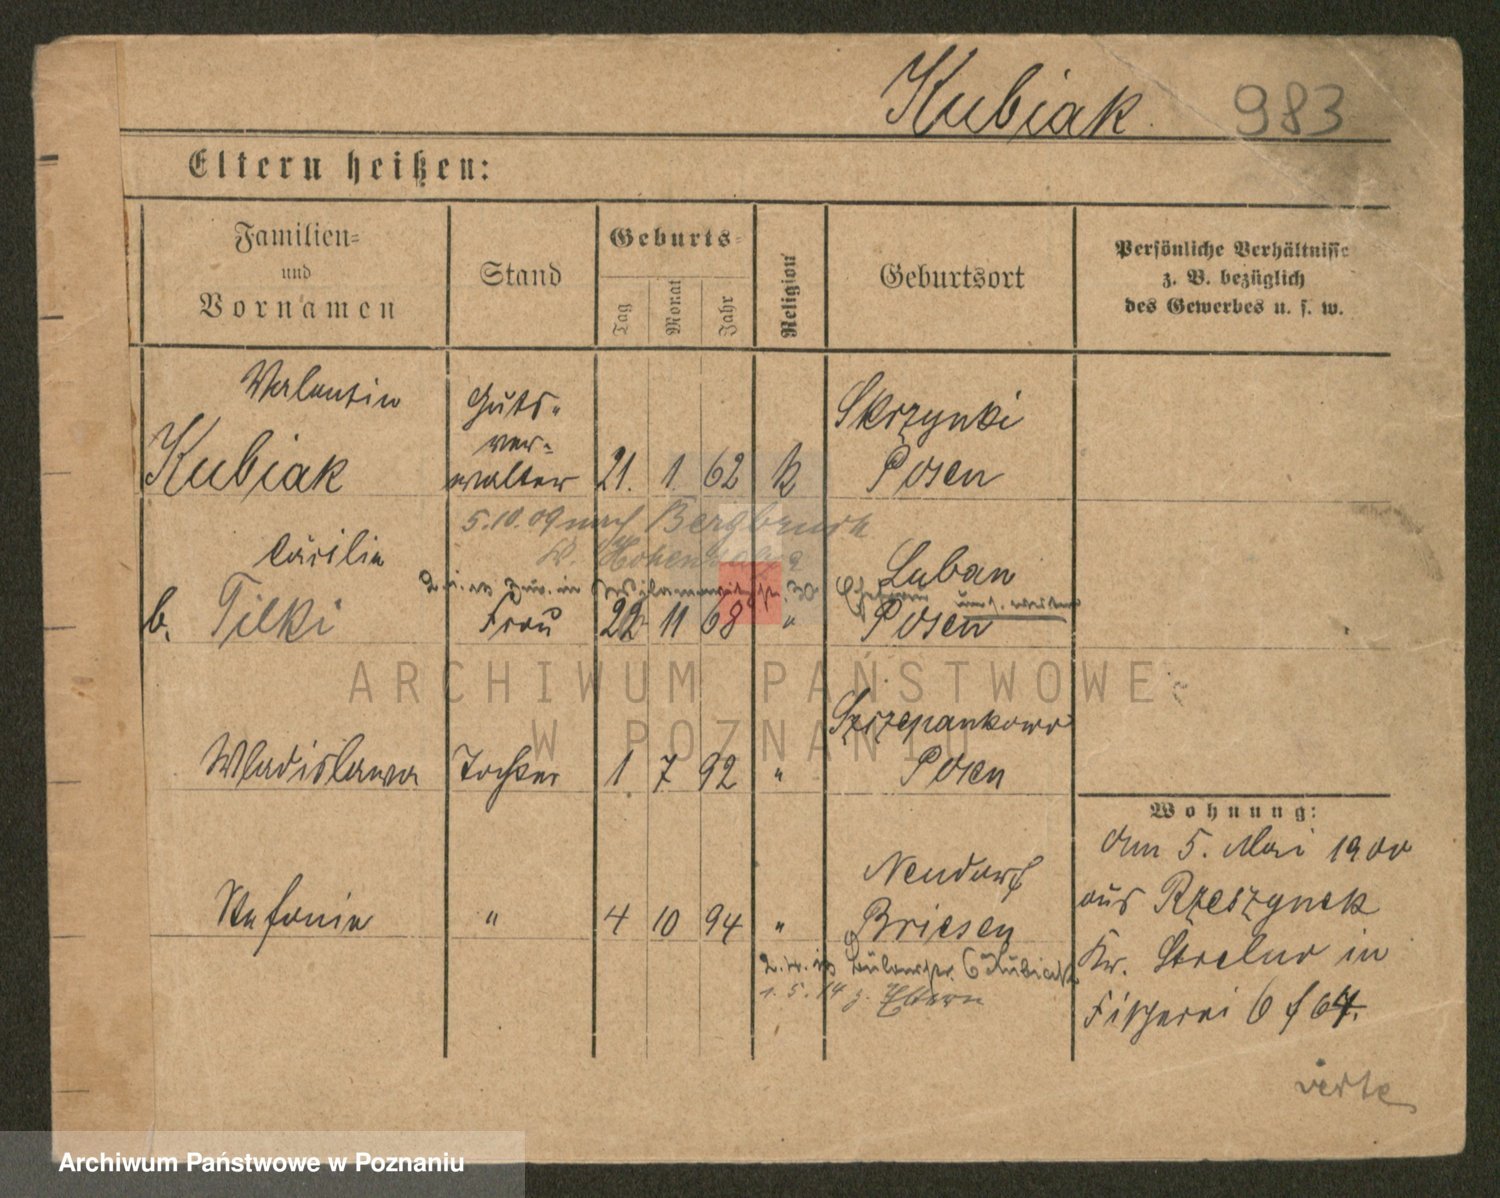 Kubiak. 983
Eltern heißen:
Familien=
und
Vornamen
Stand
Geburts=
Tag
Monat
Jahr
Religion
Geburtsort
Persönliche Verhältnisse
z. B. bezüglich
des Gewerbes u. s. w.
Valentin
Kubiak
Guts-
ver-
walter
21. 1. 62 k
Skrzynki
Posen
5.10.09 nach Bergbruch
Cäcilie
b. Tilki
Frau
22 11 68 "
Luban
Posen
Wladislawa Tochter 1 7 92 "
Szczepankowo
Posen
Stefania " 4 10 94 "
Neudorf
Briesen
1. 5. 14 z. Eltern
Wohnung:
Am 5. Mai 1900
aus Rzeszynek
Kr. Strelno in
Fischerei 6
verte
ARCHIWUM PAŃSTWOWE
W POZNANIU
Archiwum Państwowe w Poznaniu